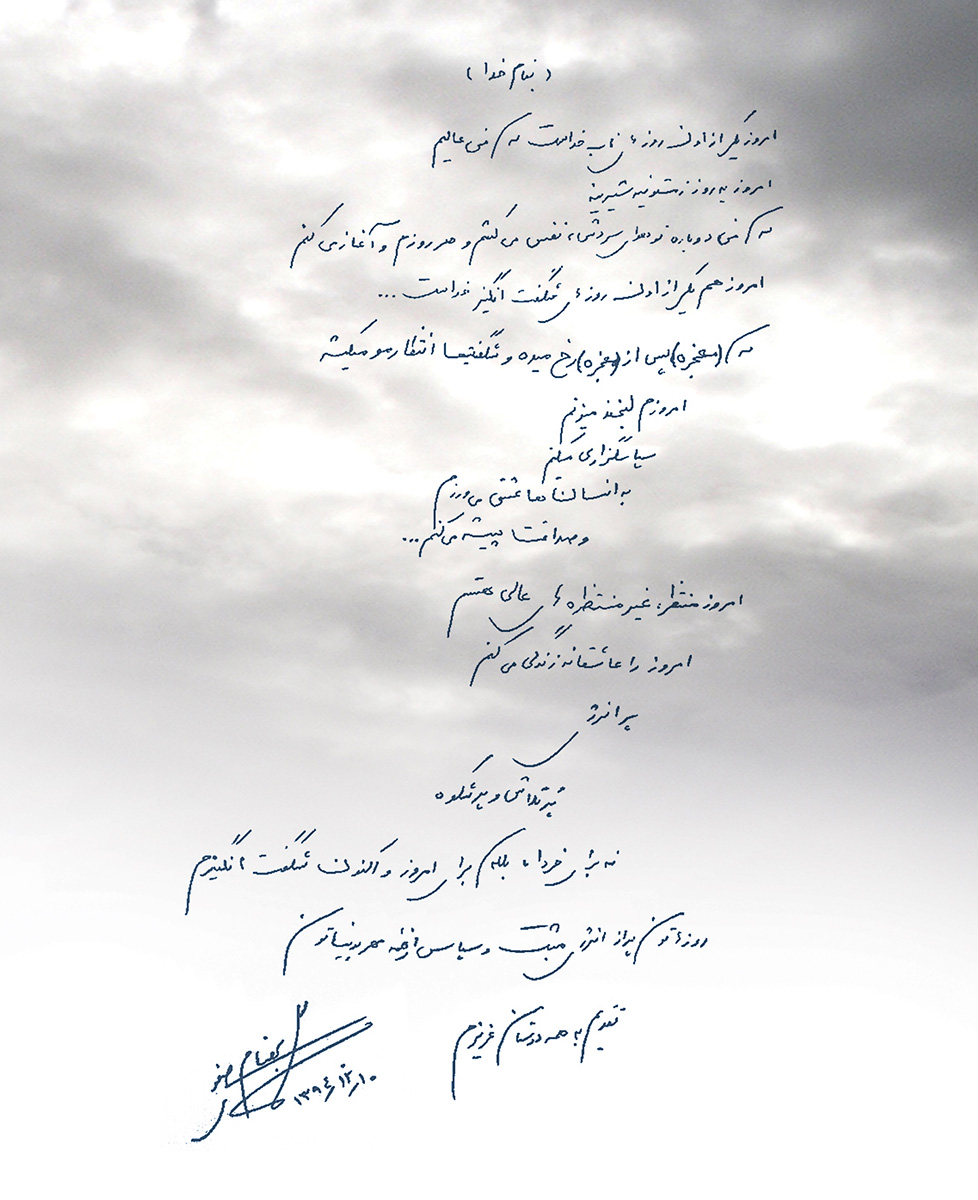 (بنام خدا)
امروز یکی از اون روزهای ناب خداست که من عالیم
امروز یه روز زمستونیه شیرینه
که من دوباره تو هوای سردش، نفس می کشم و هر روزم و آغاز می کنم
امروز هم یکی از اون روزهای شگفت انگیز خداست ...
که (معجزه) پس از (معجزه) رخ میده و شگفتیها انتظارمو میکشه
امروزم لبخند میزنم
سپاسگزاری میکنم
به انسانها عشق می ورزم
و صداقت پیشه می کنم ...
امروز منتظر، غیر منتظره های عالی هستم
امروز را عاشقانه زندگی می کنم
پر انرژی
پُر تلاش و پر شکوه
نه برای فردا، بلکه برای امروز و اکنون شگفت انگیزم
روزهاتون پر از انرژی مثبت و سپاس از همه مهربونیاتون
تقدیم به همه دوستان عزیزم
بهنام صفو
۱۳۹۴/۱۲/۱۰